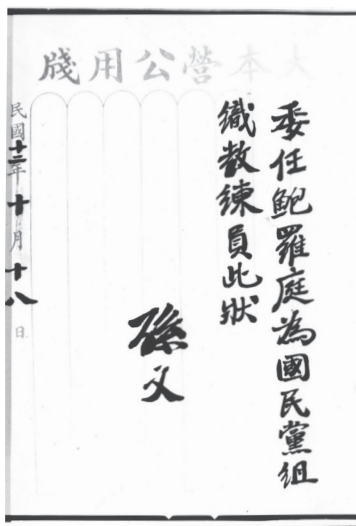 大本營公用牋
委任鮑羅庭為國民黨組
織教練員此狀
孫文
民國十二年十月十八日